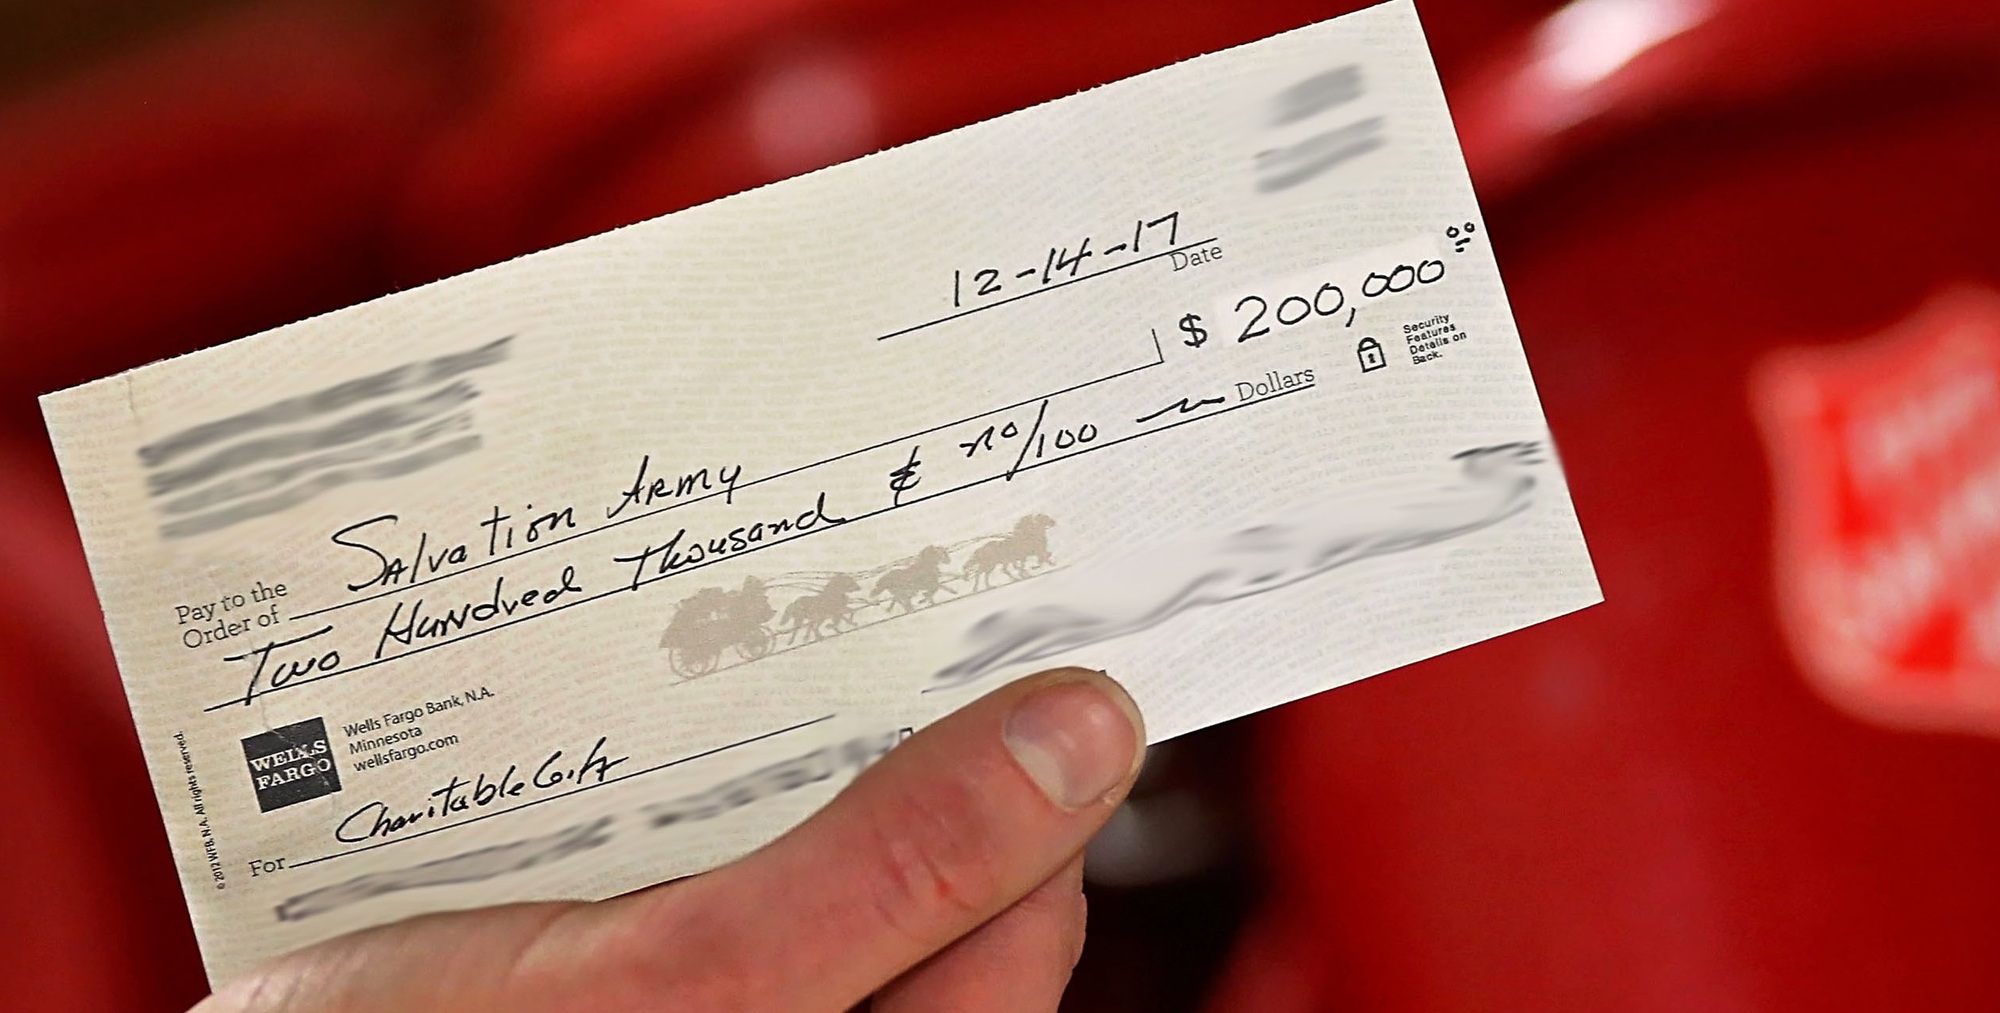 12-14-17
Date
$ 200,000 00
Pay to the
Order of Salvation Army
Two Hundred Thousand & no/100 Dollars
Security
Features
Details on
Back.
WELLS
FARGO
Wells Fargo Bank, N.A.
Minnesota
wellsfargo.com
For Charitable Gift
© 2012 WFB, N.A. All rights reserved.